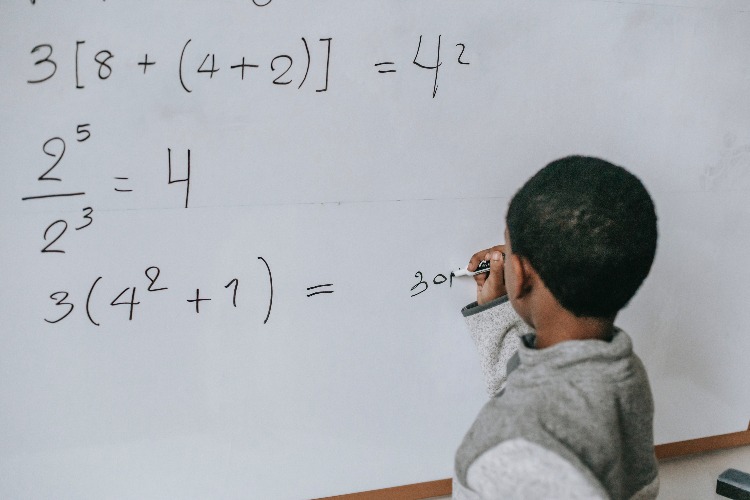 3[8+(4+2)] = 4²
2⁵/2³ = 4
3(4²+1) = 30